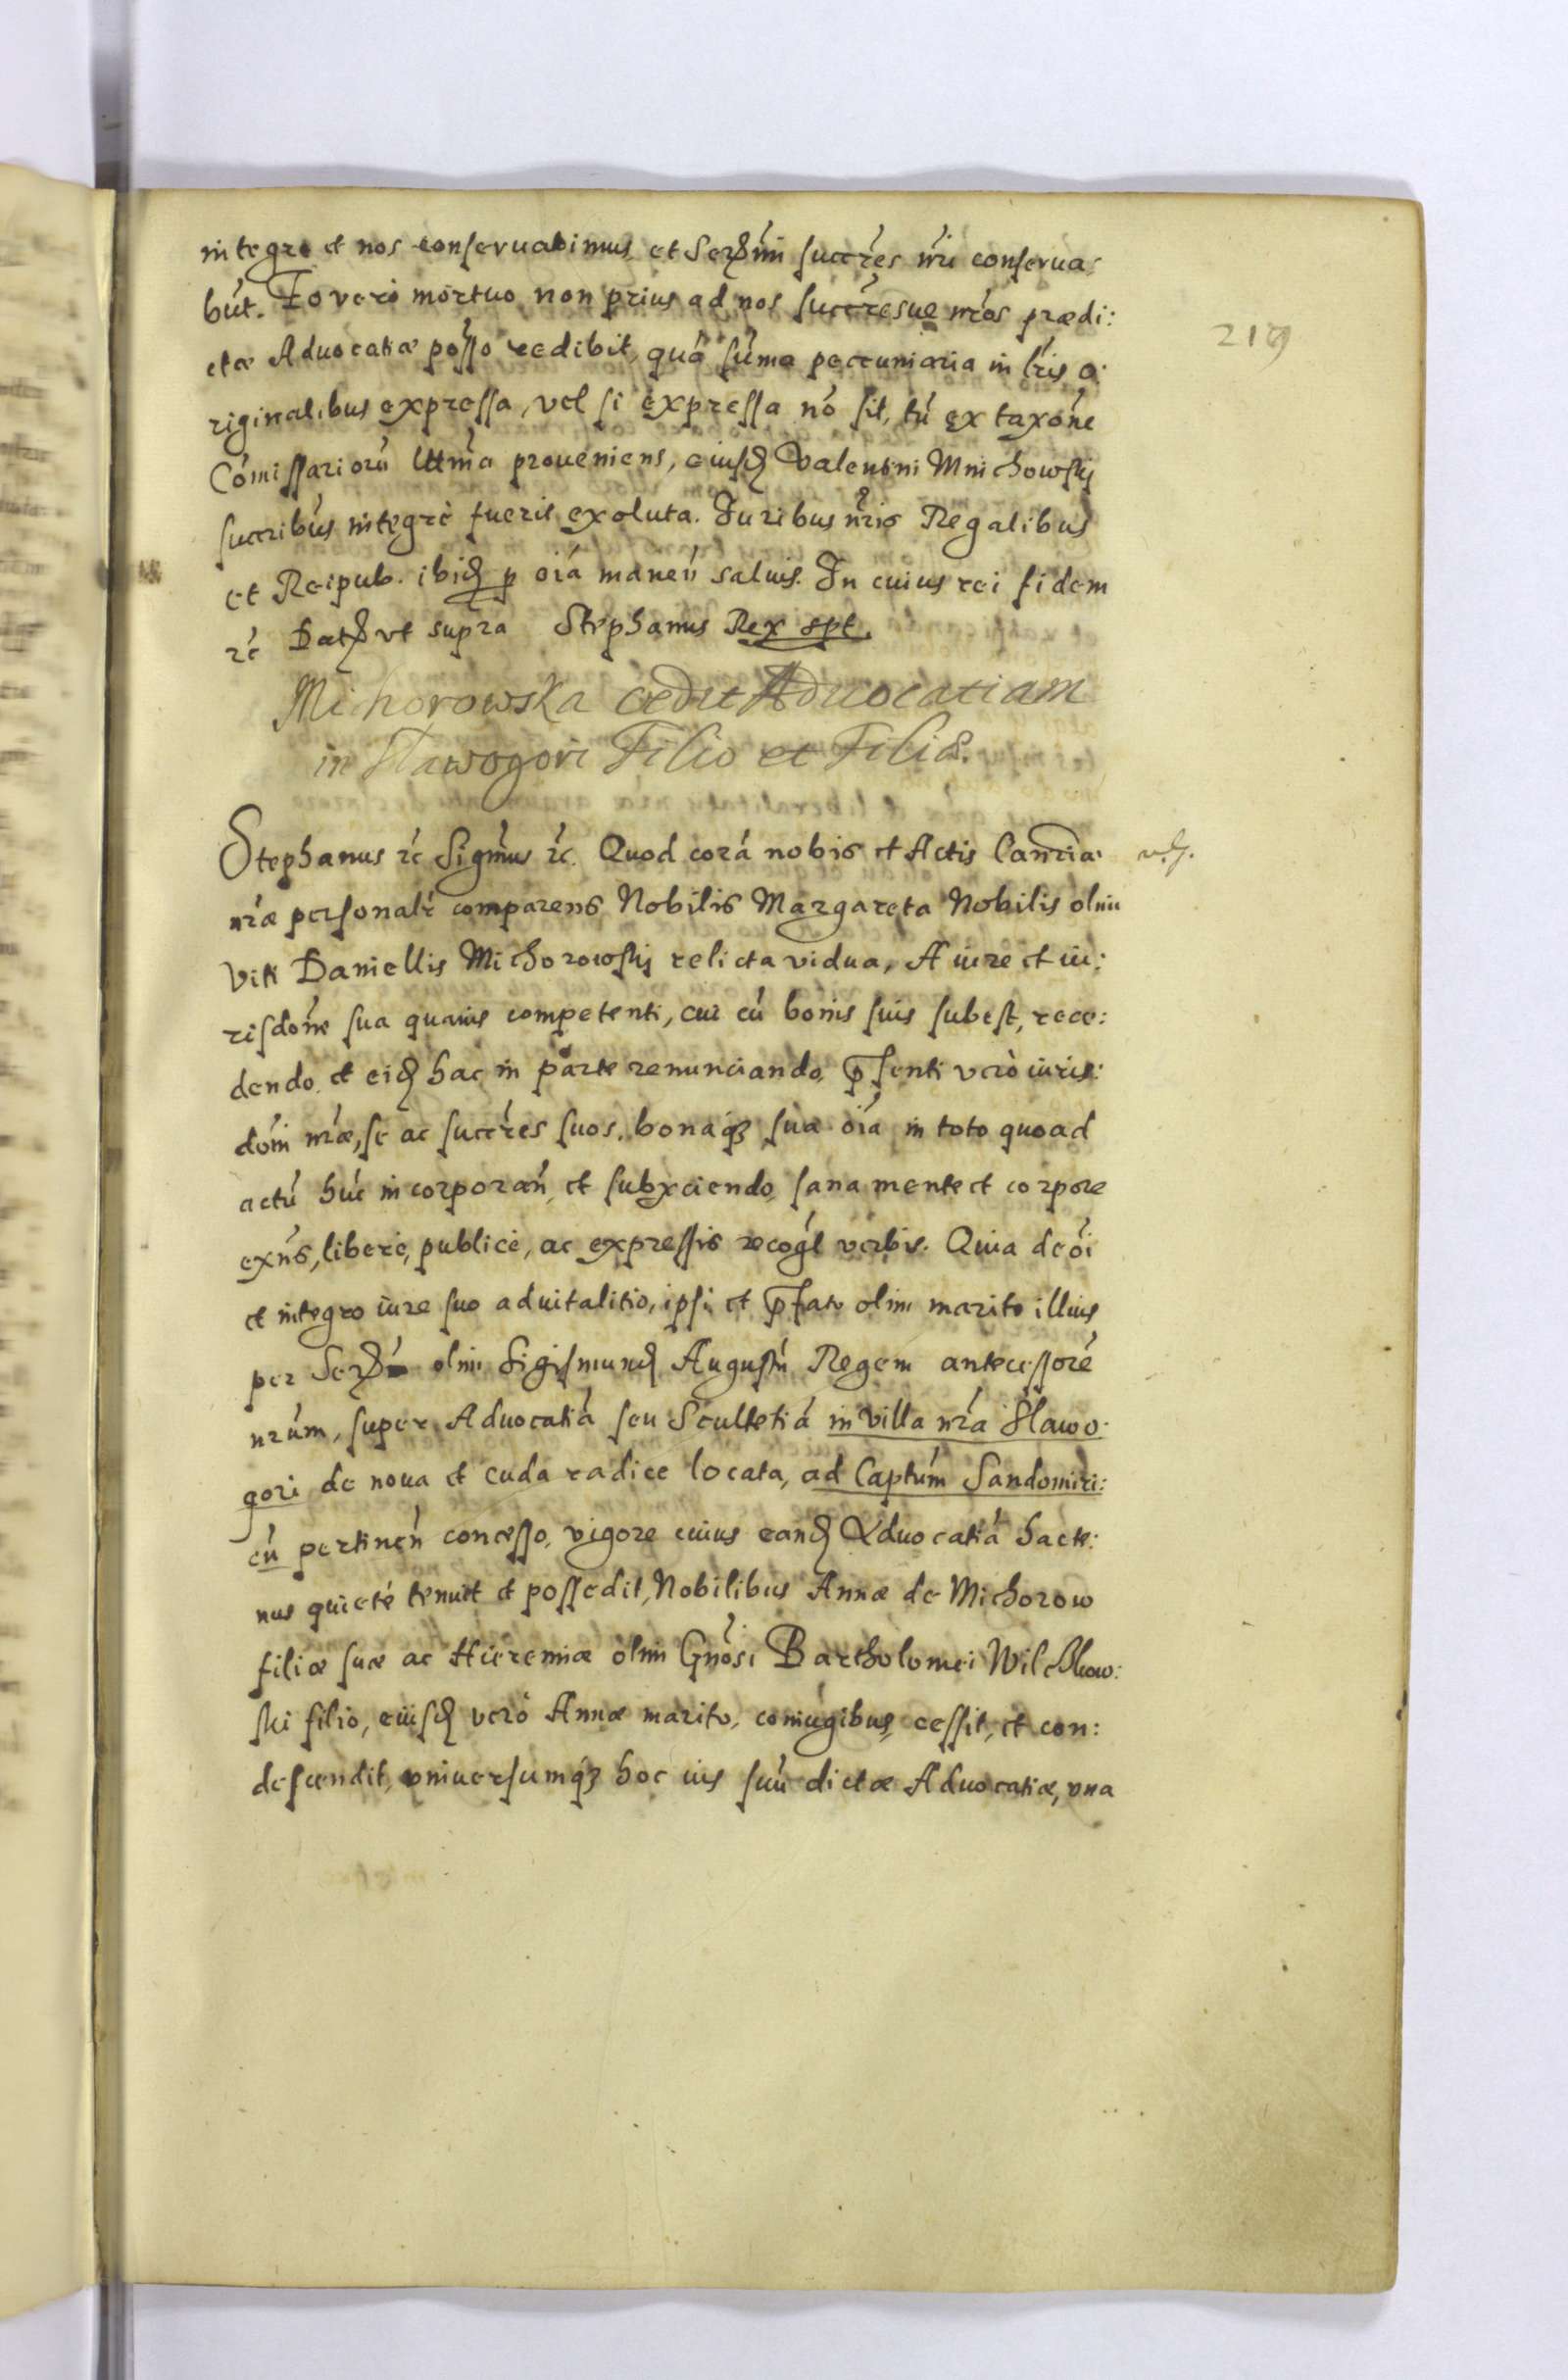 integro et nos conseruabimus, et Serẽmi succr̃es nr̃i conserua:
bũt. Eo vero mortuo non prius ad nos succr̃esue nr̃os prædi:
ctæ Aduocatiæ possõ redibit, quã sũma peccuniaria in lr̃is o:
riginalibus expressa, vel si expressa nõ sit, tũ ex taxõne
Cõmissariorũ lttĩma proueniens, eiusd Valentini Mnichowsky
succribũs integrè fuerit exoluta. Iuribus nr̃is Regalibus
et Reipub. ibid p oĩa maneñ saluis. In cuius rei fidem
rc̃ Dat vt supra Stephanus Rex spt.
Michorowska cedit Advocatiam
in Slawogori Filio et Filiæ.
219
Stephanus rc̃ Sigm̃us rc̃. Quod corã nobis et Actis Canr̃ia:
nr̃æ personalr̃ comparens Nobilis Margareta Nobilis olim
Viti Daniellis Michorowsky relicta vidua, A iure et iu:
risdõne sua quauis competenti, cui cũ bonis suis subest, rece:
dendo, et eid hac in parte renunciando, p̃senti verò iuris:
dõni nr̃æ, se ac succr̃es suos, bonaq3 sua oĩa in toto quoad
actũ hũc incorporañ, et subyciendo, sana mente et corpore
exñs, liberè, publicè, ac expressis recogl̃ verbis. Quia de oĩ
et integro iure suo aduitalitio, ipsi et p̃fato olim marito illius
per Serẽ olim Sigismund Augustũ Regem antecessorẽ
nr̃um, super Aduocatiã seu Scultetiã in villa nr̃a Slawo:
gori de noua et cuda radice locata, ad Captũm Sandomiri:
eñ pertineñ concesso, vigore cuius eand Aduocatiã hacte:
nus quietè tenuit et possedit, Nobilibus Annæ de Michorow
filiæ suæ ac Hieremiæ olim Gnõsi Bartholomei Wilchkow:
ski filio, eiusd verò Annæ marito, coniugibus, cessit, et con:
descendit, vniuersumq3 hoc ius suũ dictæ Aduocatiæ, vna